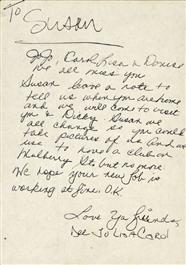 To Susan
Jo Jo, Carol, Lisa & Donise
We all miss you
Susan leave a note to
tell us when you are home
and we will come to visit
you & Dicky. Susan we
all change so you could
take pictures of us And we
use to have a club on
Mulberry St. but no more
We hope your new job is
working out fine. O.K
Love Ya Friends,
Dee Jo Lisa Carol